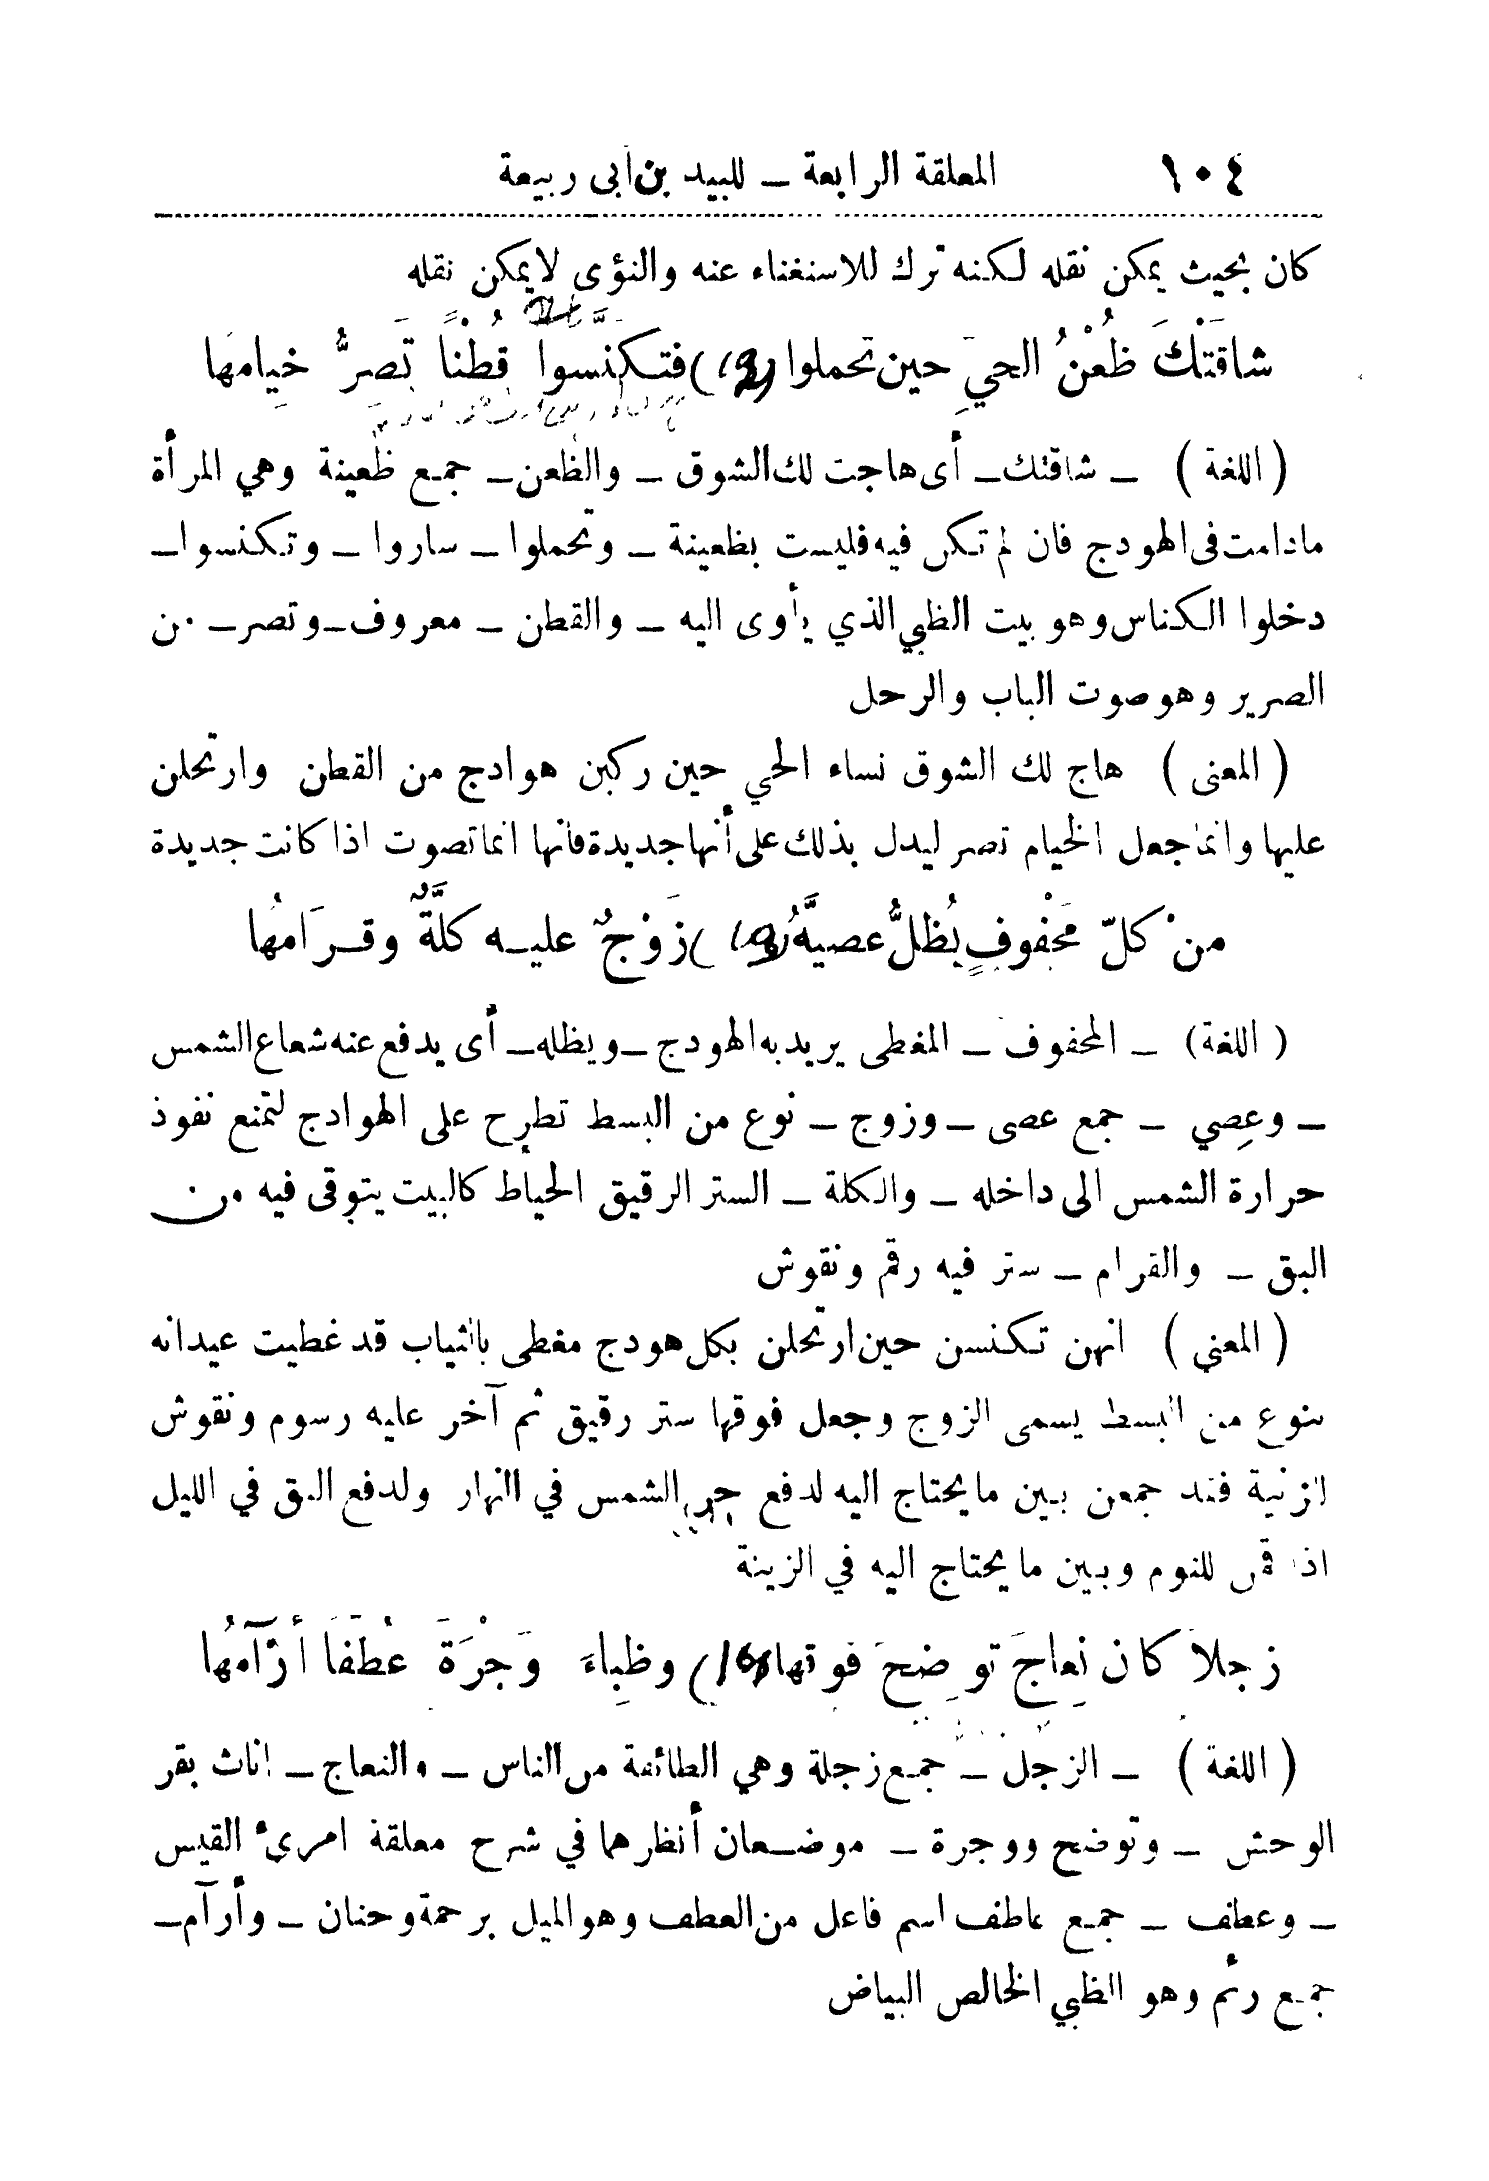 ١٠٤ المعلقة الرابعة – للبيد بن أبى ربيعة
كان بحيث يمكن نقله لكنه ترك للاستغناء عنه والنؤى لا يمكن نقله
شاقَتْكَ ظُعْنُ الحيِّ حين تحملوا فتكنَّسوا قُطْناً تَصِرُّ خيامُها
( اللغة ) – شاقتك – أى هاجت لك الشوق – والظعن – جمع ظعينة وهي المرأة
مادامت فى الهودج فان لم تكن فيه فليست بظعينة – وتحملوا – ساروا – وتكنسوا –
دخلوا الكناس وهو بيت الظبي الذي يأوى اليه – والقطن – معروف – وتصر – من
الصرير وهو صوت الباب والرحل
( المعنى ) هاج لك الشوق نساء الحي حين ركبن هوادج من القطن وارتحلن
عليها وانما جعل الخيام تصر ليدل بذلك على أنها جديدة فانها انما تصوت اذا كانت جديدة
منْ كلّ مَحْفوفٍ يُظلُّ عصيَّهُ زَوْجٌ عليه كلَّةٌ وقرَامُها
( اللغة ) – المحفوف – المغطى يريد به الهودج – ويظله – أى يدفع عنه شعاع الشمس
– وعِصي – جمع عصى – وزوج – نوع من البسط تطرح على الهوادج لتمنع نفوذ
حرارة الشمس الى داخله – والكلة – الستر الرقيق الخياط كالبيت يتوقى فيه من
البق – والقرام – ستر فيه رقم ونقوش
( المعني ) انهن تكنسن حين ارتحلن بكل هودج مغطى بالثياب قد غطيت عيدانه
بنوع من البسط يسمى الزوج وجعل فوقها ستر رقيق ثم آخر عليه رسوم ونقوش
لزنية فقد جمعن بين ما يحتاج اليه لدفع حر الشمس في النهار ولدفع البق في الليل
اذا قمن للنوم وبين ما يحتاج اليه في الزينة
زجلاً كان نِعاجَ توضِحَ فوقها وظِباءَ وَجْرَةَ عُطَّفاً أرْآمُها
( اللغة ) – الزجل – جمع زجلة وهي الطائفة من الناس – والنعاج – اناث بقر
الوحش – وتوضح ووجرة – موضعان أنظرهما في شرح معلقة امرئ القيس
– وعطف – جمع عاطف اسم فاعل من العطف وهو الميل برحمة وحنان – وأرآم –
جمع رئم وهو الظبي الخالص البياض